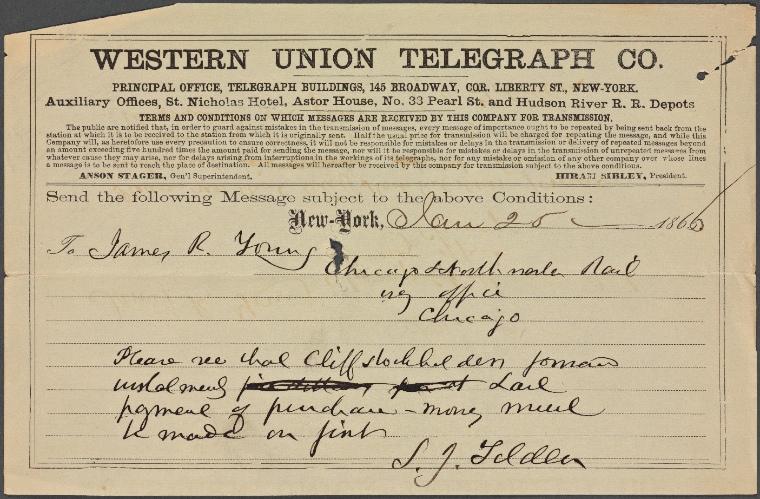 WESTERN UNION TELEGRAPH CO.
PRINCIPAL OFFICE, TELEGRAPH BUILDINGS, 145 BROADWAY, COR. LIBERTY ST., NEW-YORK.
Auxiliary Offices, St. Nicholas Hotel, Astor House, No. 33 Pearl St. and Hudson River R. R. Depots
TERMS AND CONDITIONS ON WHICH MESSAGES ARE RECEIVED BY THIS COMPANY FOR TRANSMISSION.
The public are notified, that, in order to guard against mistakes in the transmission of messages, every message of importance ought to be repeated by being sent back from the
station at which it is to be received to the station from which it is originally sent. Half the usual price for transmission will be charged for repeating the message, and while this
Company will, as heretofore use every precaution to ensure correctness, it will not be responsible for mistakes or delays in the transmission or delivery of repeated messages beyond
an amount exceeding five hundred times the amount paid for sending the message, nor will it be responsible for mistakes or delays in the transmission of unrepeated messages from
whatever cause they may arise, nor for delays arising from interruptions in the workings of its telegraphs, nor for any mistake or omission of any other company over whose lines
a message is to be sent to reach the place of destination. All messages will hereafter be received by this company for transmission subject to the above conditions.
ANSON STAGER, Gen'l Superintendent. HIRAM SIBLEY, President.
Send the following Message subject to the above Conditions:
New-York, Jan 25 1866
To James R. Young
Chicago & Northwestern Rail
way office
Chicago
Please see that Cliff stockholders
instalment
payment of purchase-money must
be made on first
S. J. Tilden